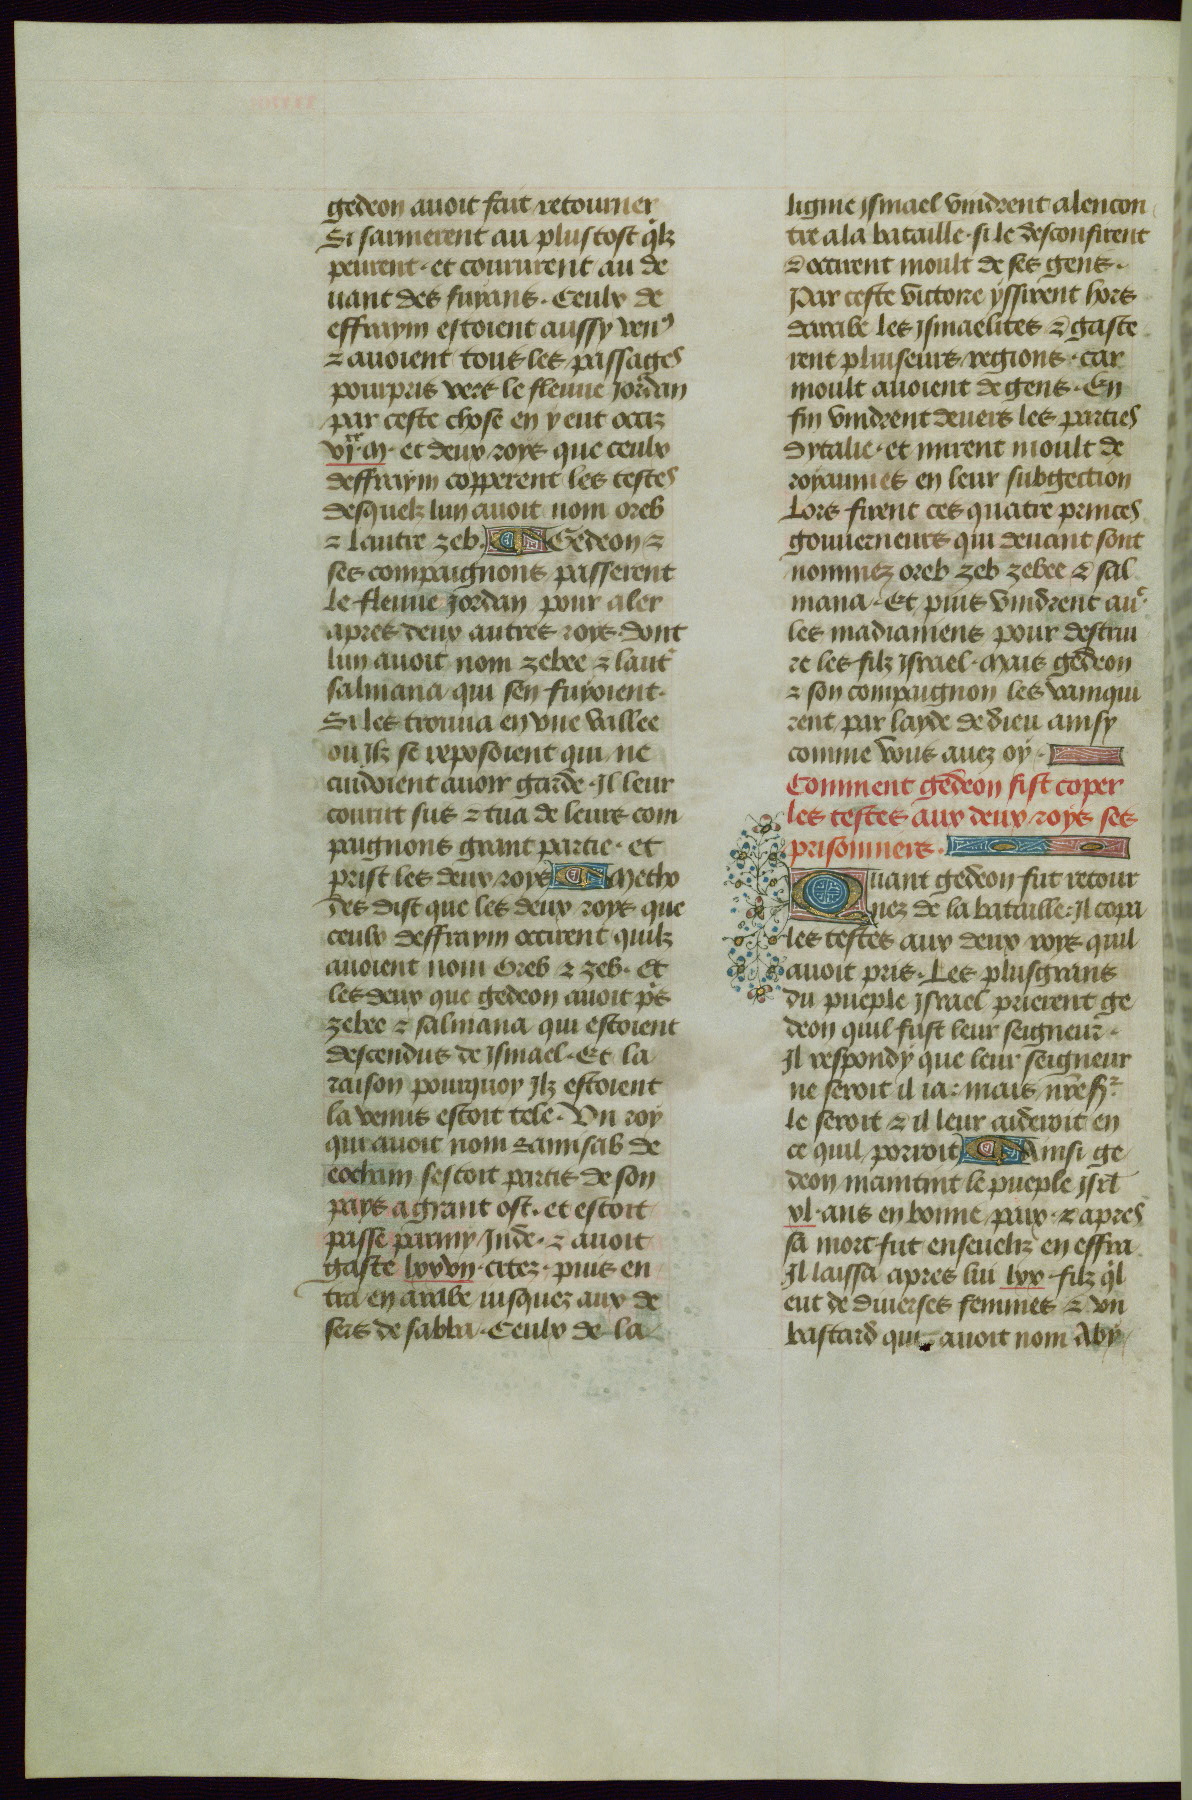 gedeon auoit fait retourner
Si sarmerent au plus tost q̓lz
peurent · et coururent au de
uant des fuyans · Ceulx de
effraym estoient aussy venꝰ
⁊ auoient tous les passages
pourpris vers le fleuue Jordan
par ceste chose en y eut occiz
vjˣˣ · m · et deux roys que ceulx
deffraym copperent les testes
desquelz lun auoit nom oreb
⁊ lautre zeb · Gedeon ⁊
ses compaignons passerent
le fleuue Jordan pour aler
apres deux autres roys dont
lun auoit nom zebee ⁊ laut̓
salmana qui sen fuyoient ·
Si les trouua en vne vallee
ou Jlz se reposoient qui ne
cuidoient auoir garde · Il leur
courut sus ⁊ tua de leurs com
paignons grant partie · et
prist les deux roys Metho
des dist que les deux roys que
ceulx deffraym occirent quilz
auoient nom Oreb ⁊ zeb · Et
les deux que gedeon auoit p̓s
zebee ⁊ salmana qui estoient
descendus de Ismael · Et la
raison pourquoy Jlz estoient
la venus estoit tele · Un roy
qui auoit nom samisab de
eocham sestoit partis de son
pays a grant ost · et estoit
passe parmy Jnde · ⁊ auoit
gaste lxxvij · citez · puis en
tra en arabe iusquez aux de
sers de sabba · Ceulx de la
ligine ismael vindrent alencon
tre a la bataille · si le desconfirent
⁊ occirent moult de ses gens ·
Par ceste victoire yssirent hors
darabe les ismaelites ⁊ gaste
rent pluiseurs regions · car
moult auoient de gens · En
fin vindrent deuers les parties
dytalie · et mirent moult de
royaumes en leur subgection
Lors firent ces quatre princes
gouuerneurs qui deuant sont
nommez oreb zeb zebee ⁊ sal
mana · Et puis vindrent auͨ
les madianiens pour destrui
re les filz israel · Mais gedeon
⁊ son compaignon les vainqui
rent par layde de dieu ainsy
comme vous auez oy ·
Comment gedeon fist coper
les testes aux deux roys ses
prisonniers ·
Quant gedeon fut retour
nez de la bataille : il copa
les testes aux deux roys quil
auoit pris · Les plusgrans
du pueple israel prierent ge
deon quil fust leur seigneur ·
Il respondy que leur seigneur
ne seroit il ia : mais nr̄e sʳ
le seroit ⁊ il leur aideroit en
ce quil porroit Ainsi ge
deon maintint le pueple isrl̄
xl · ans en bonne paix · ⁊ apres
sa mort fut enseueliz en effra
Il laissa apres lui lxx · filz q̓l
eut de diuerses femmes ⁊ vn
bastard qui auoit nom Aby